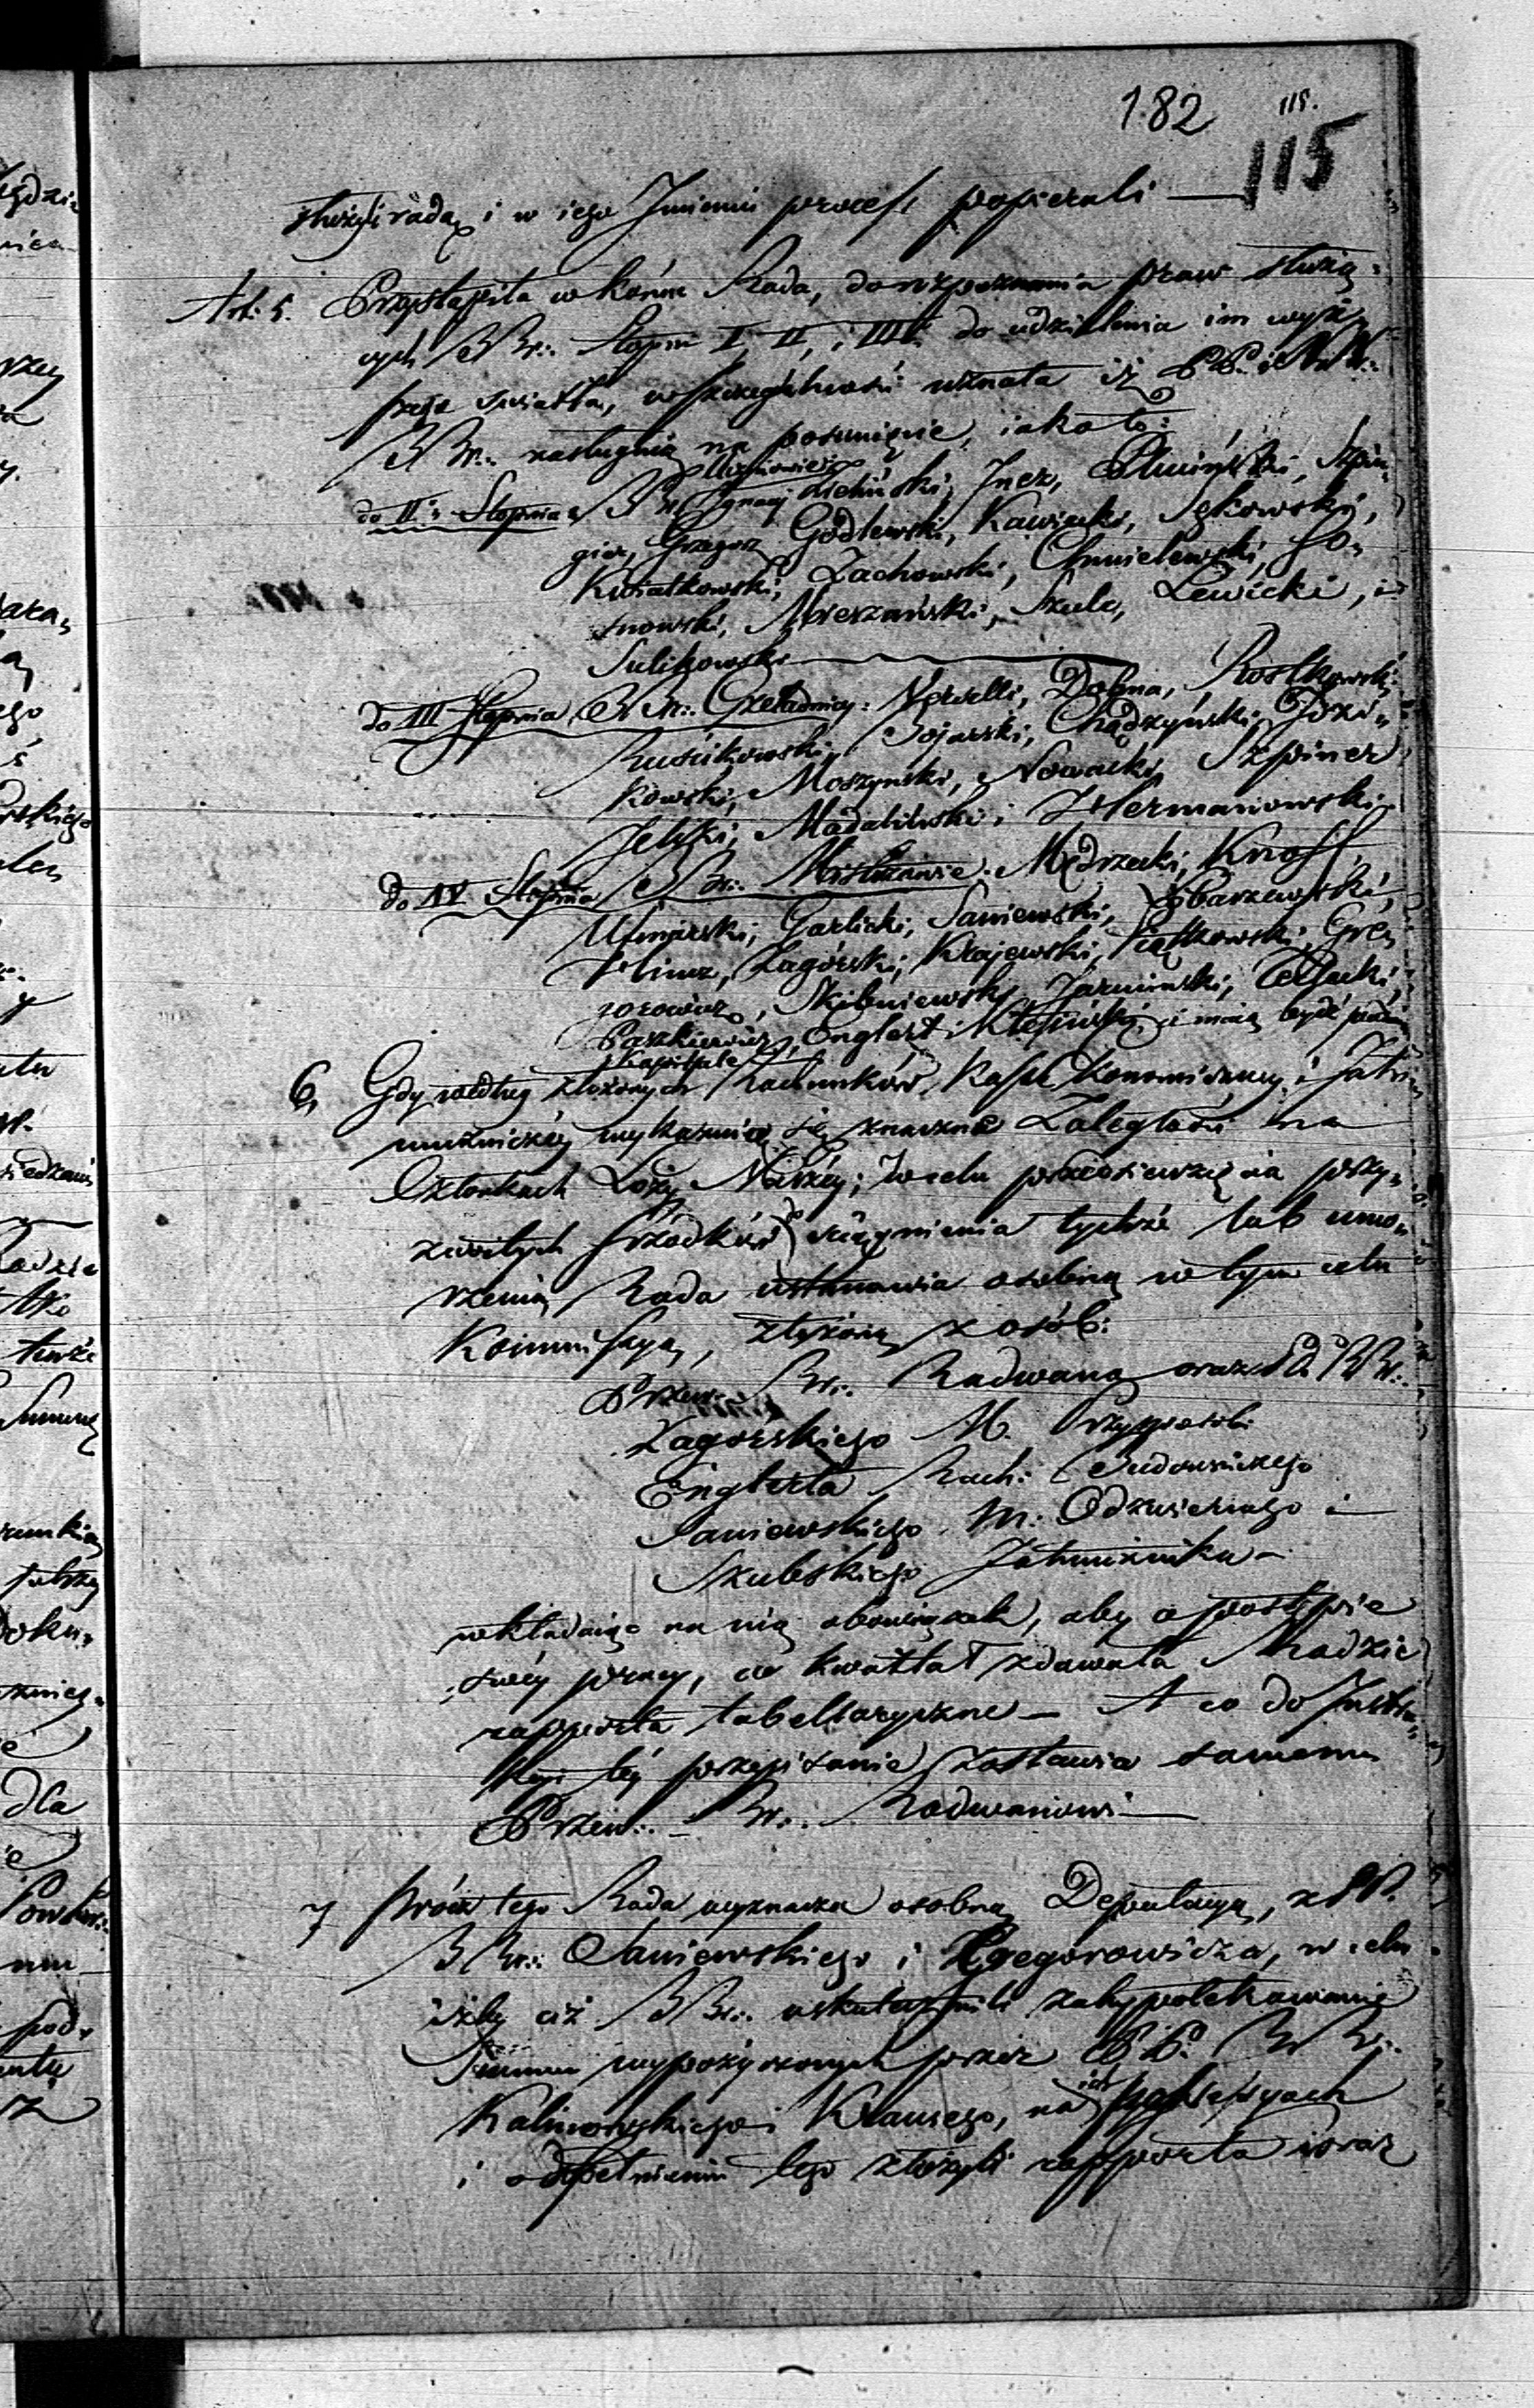 182 115.
115
służyli radą i w iego Imieniu process popierali —
Art: 5. Przystąpiła w końcu Rada, do rozpoznania praw służą-
cych BBr∴ Stopnia I, II, i III. do udzielenia im wyż-
szego światła, w szczególności uznała iż PP. i NN∴
BBr∴ zasługują na posunięcie, iako to:
do II: Stopnia BBr Uczniowie
Ignacy Zieliński, Inez, Śliwiński, Szpin-
gier, Grzegorz Godlewski, Kawiecki, Sękowski,
Kwiatkowski, Zachowski, Chmielewski, So-
snowski, Mieszański, Szulc, Lewicki, i
Sulikowski
do III Stopnia BBr∴ Czeladnicy: Newelli, Dobna, Rostkowski
Rusiikowski, Bojarski, Chądzyński, Idzi-
kowski, Moszyński, Nowacki, Szpiner
Jelski, Madaliński i J Hermanowski
do IV Stopnia BBr∴ Mistrzowie: Mędrzecki, Knoff,
Umiński, Garlicki, Saniewski, Zbarzewski,
Hincz, Zagórski, Krajewski, Piątkowski, Gre-
gorowicz, Skibniewski, Jarmiński,
Paszkiewicz, Englert i i maią bydź podani
Kapitule
6 Gdy według złożonych Rachunków, Kassa Ekonomiczney i Jał-
mużniczéy wykazuie się znaczna Zaległość na
Członkach Loży Nászéy; w celu przedsiewzięcia przy-
zwoitych śrzodków do sciągnienia tychże lub umo-
rzenia, Rada ustanawia osobną w tym celu
Kommissyą, złożoną z osób:
Przew∴ Br∴ Radwana oraz PP. BBr∴
Zagorskiego M. Przysposob:
Englerta Rach: Budowniczego
Saniewskiego M: Odzwiernego i
Szulskiego Jałmużnika —
wkładaiąc na nią obowiązek, aby o postępie
swéy pracy, co kwartał zdawała Radzie
rapporta tabellaryczne — A co do Instru-
kcyi téy przepisanie zostawia samemu
Przew∴ Br∴ Radwanowi —
7 prócz tego Rada wyznacza osobną Deputacyą, z PP.
BBr∴ Saniewskiego i Gregorowicza, w celu
iżby ciż BBr∴ uskutecznili zahypotekowanie
Summ wypożyczonych przez PP. BBr∴
Kalinowskiego i Krausego, na ich
i o dopełnieniu tego złożyli rapporta oraz